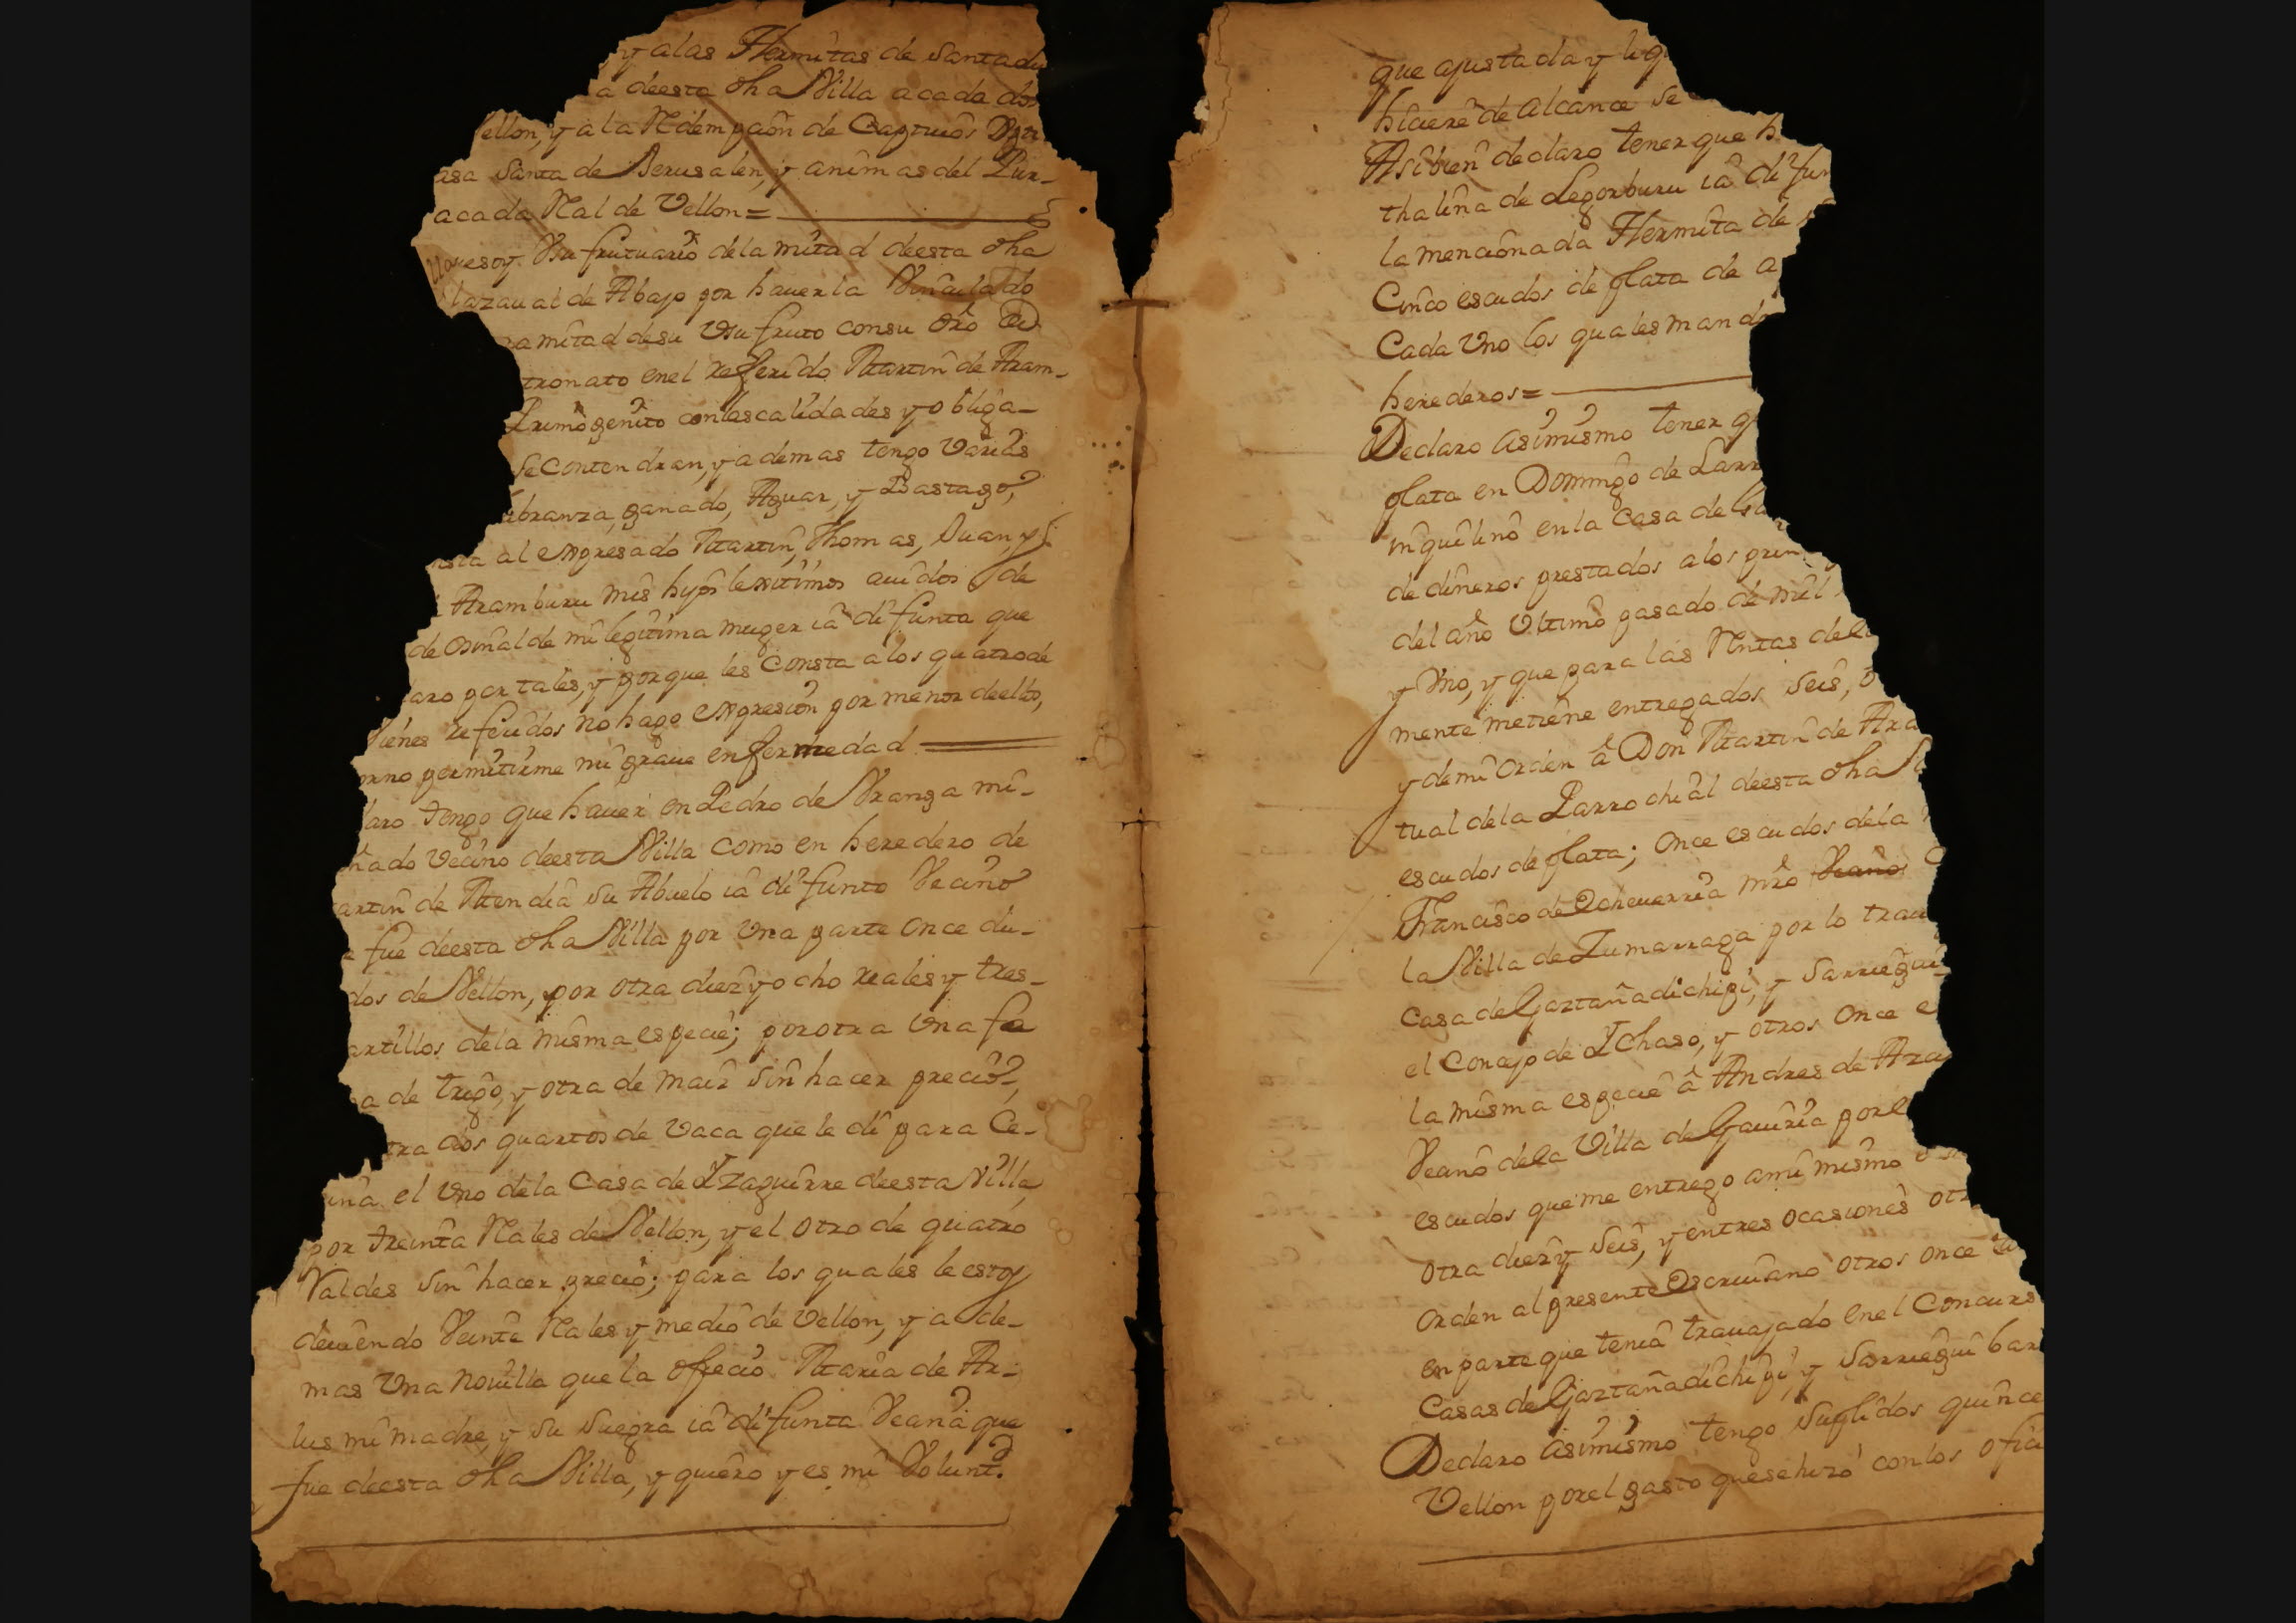 y alas Hermitas de Santa
a deesta dha Villa acada dos
vellon, y a la Rdempçion de Captiuos
asa Santa de Jerusalen, y animas del Pur-
acada Real de Vellon =
que soy Vsufrutuario dela mitad deesta dha
lazaual de Abajo por hauerla Vinculado
ra mitad desu Vsufruto consu dro
tronato enel referido Martin de Aram-
Primogenito conlas calidades y obliga-
se Contendran, y ademas tengo Varias
branza, ganado, Axuar, y Bastago,
nsta al expresado Martin, Thomas, Juan, y
Aramburu mis hijos lexitimos auidos de
de Osinalde mi legitima muger ia difunta que
aro por tales, y porque les Consta alos quatro de
ienes referidos no hago expresion por menor deellos,
orno permitirme mi graue enfermedad
laro tengo que hauer en Pedro de Vranga mi-
ñado Vecino deesta Villa como en heredero de
artin de Mendia su Abuelo ia difunto Vecino
e fue deesta dha Villa por Vna parte once du-
dos de Vellon, por otra diez y ocho reales y tres-
artillos dela misma especie; por otra Vna fa
a de trigo, y otra de maiz sin hacer precio,
tra dos quartos de Vaca que le di para Ce-
ina el Vno dela Casa de Yzaguirre deesta Villa,
por treinta Rales de Vellon, y el otro de quatro
Valdes sin hacer precio; para los quales le estoy
deuiendo Veinte Rales y medio de Vellon, y a de-
mas Vna nouilla que la ofrecio Maria de Ar-
lus mi madre, y su suegra ia difunta Vecina que
fue deesta dha Villa, y quiero y es mi Volunt.d
que ajustada y liq
hiciere de alcance se
Asibien declaro tener que h
thalina de Legorburu ia difun
la mencionada Hermita de
Cinco escudos de plata de a
Cada Vno los quales mando
herederos =
Declaro asimismo tener q
plata en Domingo de Larr
inquilino en la Casa de Ga
de dineros prestados a los prin
del año Vltimo pasado de mil
y Vno, y que para las Rentas del
mente metiene entregados seis, o
y de mi orden â Don Martin de Ara
tual dela Parrochial deesta dha
escudos de plata; once escudos dela
Francisco de Echeuerria mro Vecino
la Villa de Zumarraga por lo trau
casa de Gaztañadichipi, y Sarriegui
el Concejo de Ychaso, y otros once e
la misma especie â Andres de Ara
Vecino dela Villa de Gauiria por el
escudos que me entrego ami mismo
otra diez y seis, y entres ocasiones otr
orden al presente Escriuano otros once
en parte que tenia trauajado enel Concurs
Casas de Gaztañadichipi, y Sarriegui bar
Declaro asimismo tengo suplidos quince
Vellon porel gasto que se hizo con los ofici